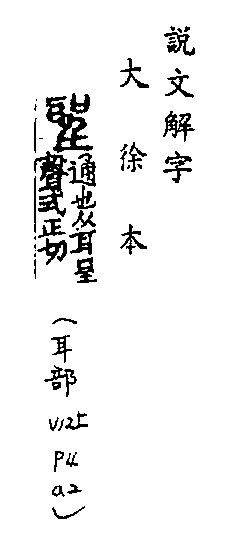 説文解字
大徐本
聖 通也从耳呈
聲式正切
(耳部 V12上 P4 a2)